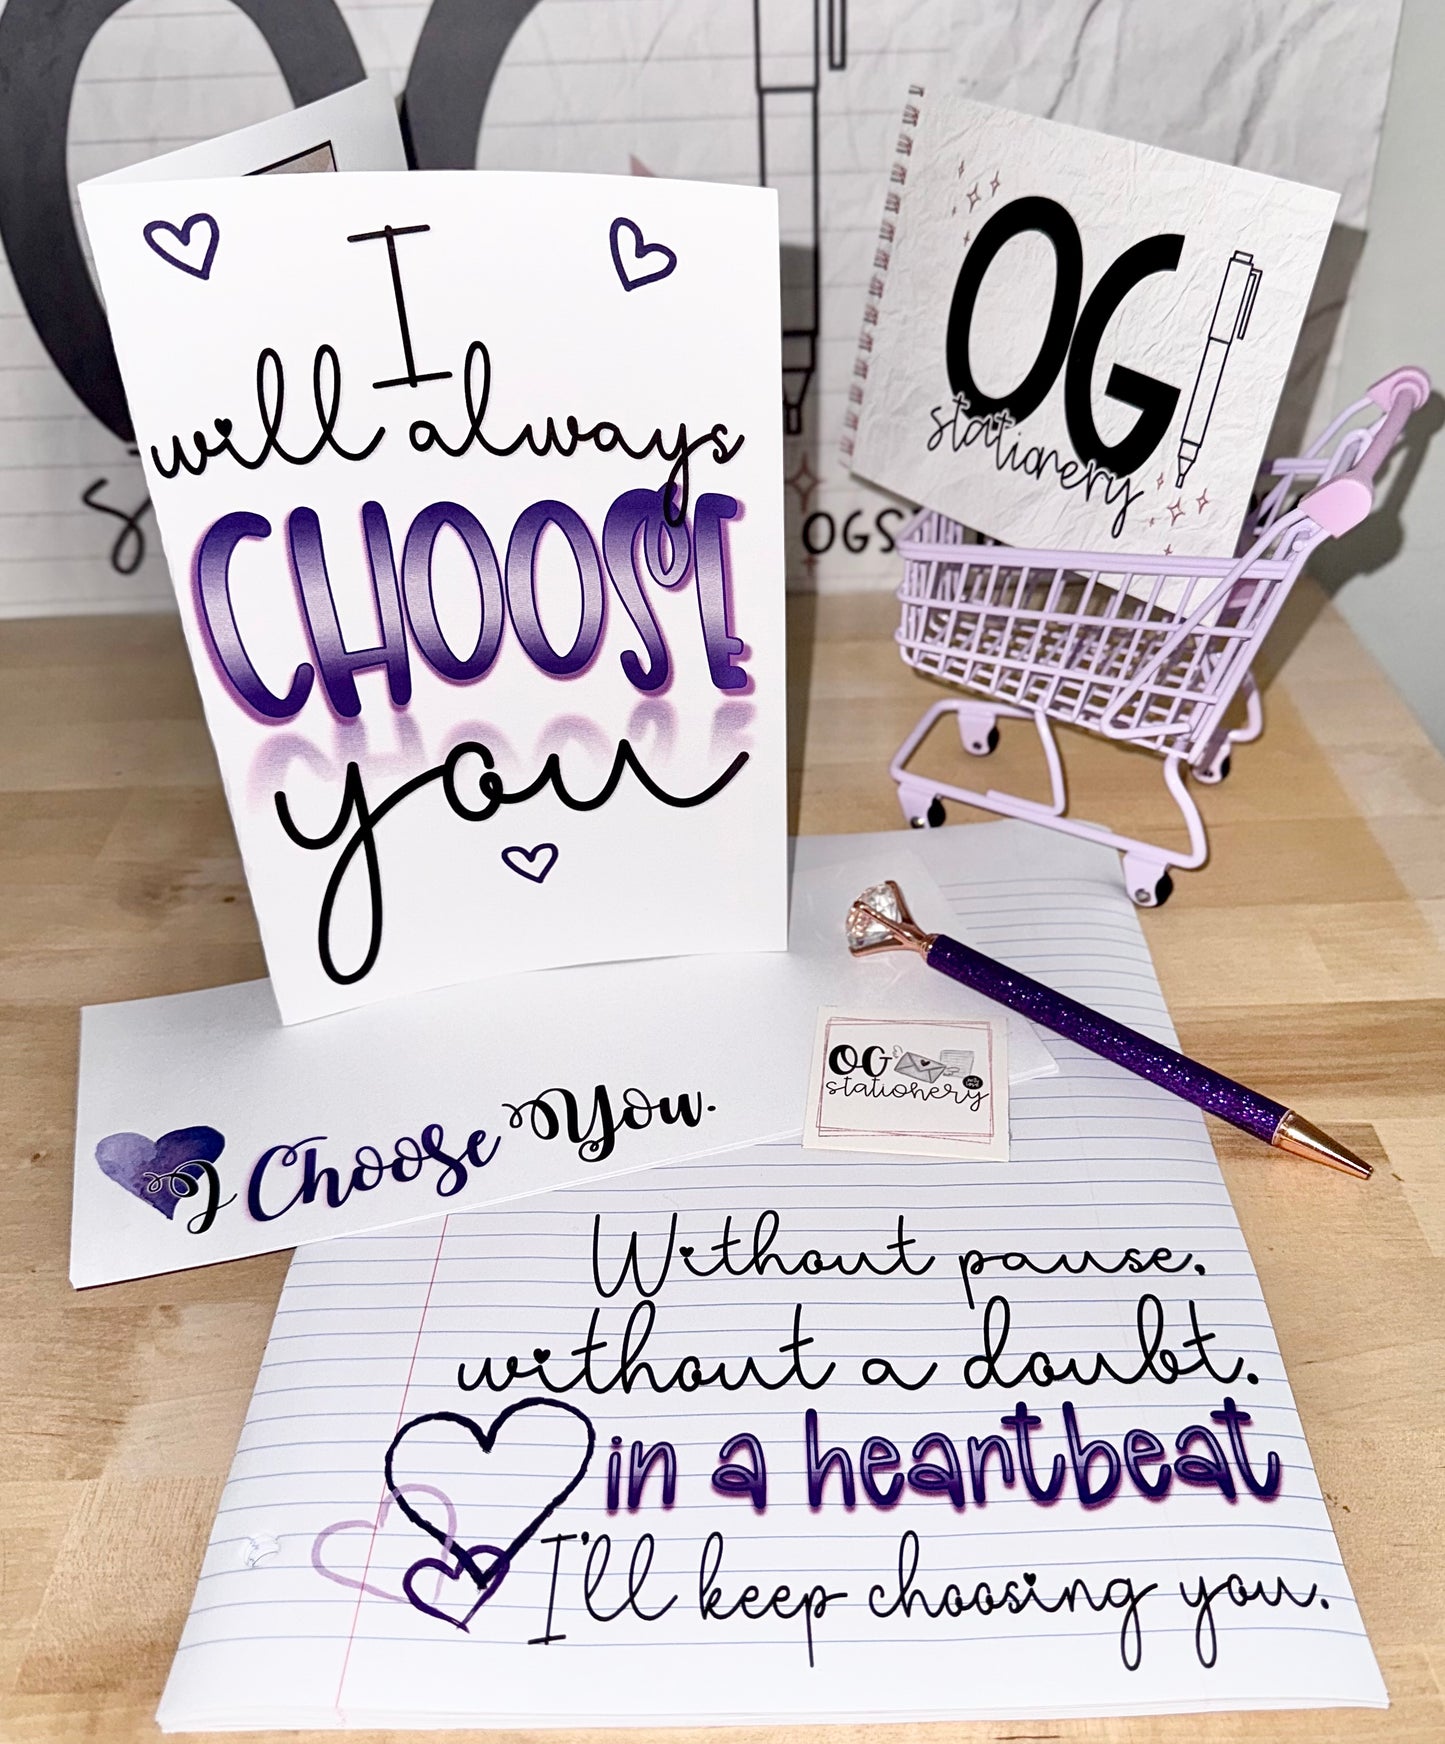 I
will always
CHOOSE
you
OG
stationery
OGS
I Choose You.
OG
stationery
Without pause,
without a doubt,
in a heartbeat
I'll keep choosing you.